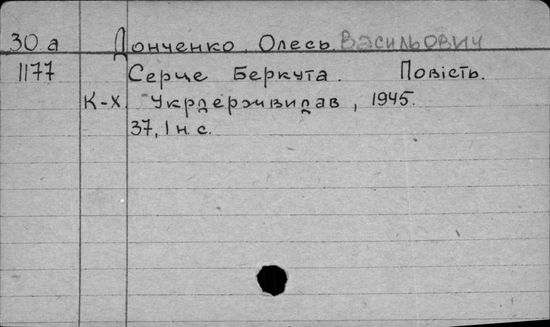 30 а Донченко, Олесь Васильович
1177 Серце Беркута. Повість.
К-Х. Укрдержвидав, 1945.
37, 1 н. с.